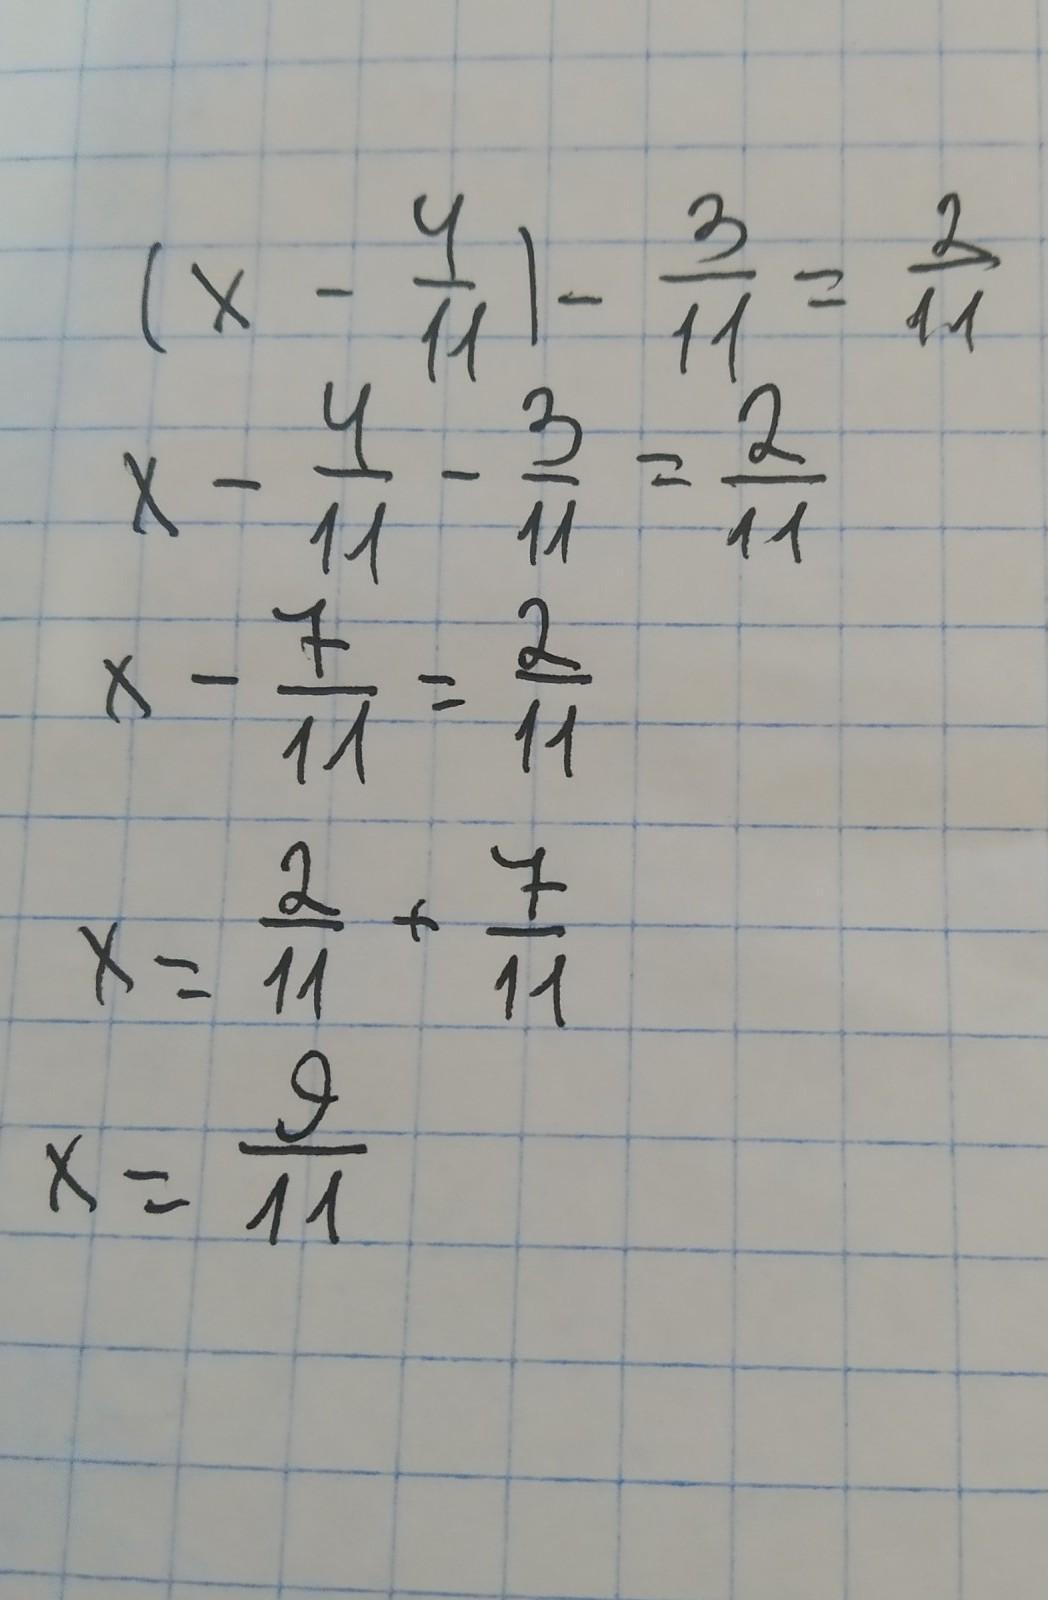 (x - 4/11) - 3/11 = 2/11
x - 4/11 - 3/11 = 2/11
x - 7/11 = 2/11
x = 2/11 + 7/11
x = 9/11